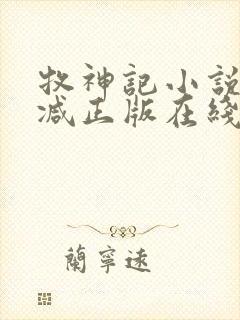 牧神記小說
减正版在綫
蘭寧遠